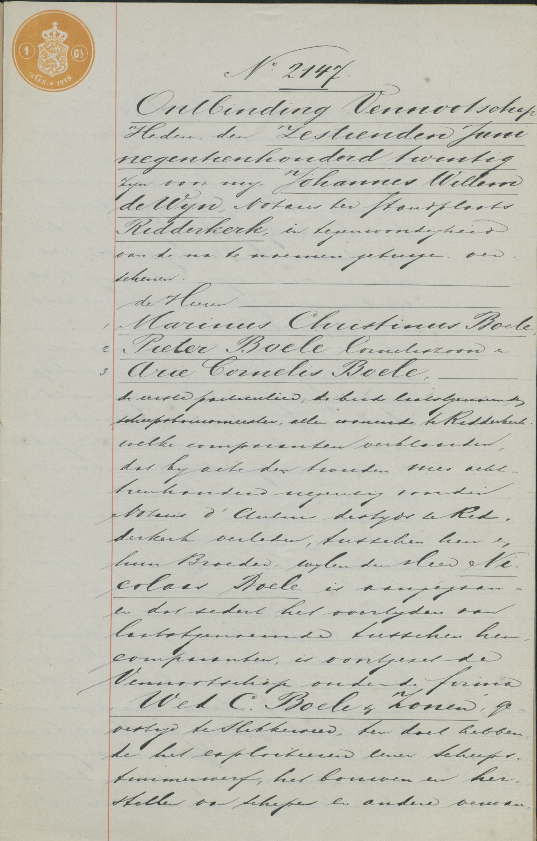 No 2147.
Ontbinding Vennootschap
Heden, den Zestienden Juni
negentienhonderd twintig
zijn voor mij, Johannes Willem
de Wijn, Notaris ter standplaats
Ridderkerk, in tegenwoordigheid
van de na te noemen getuigen ver-
schenen:
de Heeren
1 Marinus Christinus Boele,
2 Pieter Boele Corneliszoon &
3 Arie Cornelis Boele,
de eerste particulier, de beide laatstgenoemden
scheepsbouwmeester, allen wonende te Ridderkerk.
welke comparanten verklaarden,
dat bij acte den tweeden mei acht-
tienhonderd negentig voor den
Notaris d'Aumerie destijds te Rid-
derkerk verleden, tusschen hen en
hun Broeder wijlen den Heer Ni-
colaas Boele is aangegaan
en dat sedert het overlijden van
laatstgenoemde tusschen hen,
comparanten, is voortgezet de
Vennootschap onder de firma
"Wed. C. Boele & Zonen", ge-
vestigd te Slikkerveer, ten doel hebben-
de het exploiteeren eener scheeps-
timmerwerf, het bouwen en her-
stellen van schepen en andere verwan-